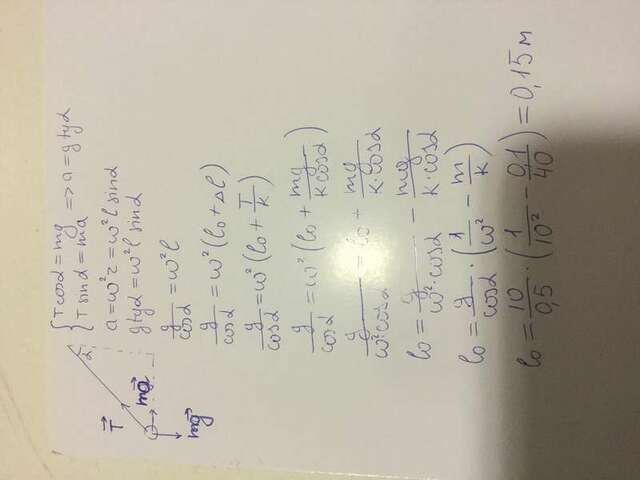 T cosα = mg
T sinα = ma => a = g tgα
a = ω²r = ω² l sinα
g tgα = ω² l sinα
g/cosα = ω² l
g/cosα = ω² (l₀ + Δl)
g/cosα = ω² (l₀ + T/k)
g/cosα = ω² (l₀ + mg/k cosα)
g/ω² cosα = l₀ + mg/k·cosα
l₀ = g/ω²·cosα − mg/k·cosα
l₀ = g/cosα · (1/ω² − m/k)
l₀ = 10/0,5 · (1/10² − 0,1/40) = 0,15 м
α
T
mg
mg